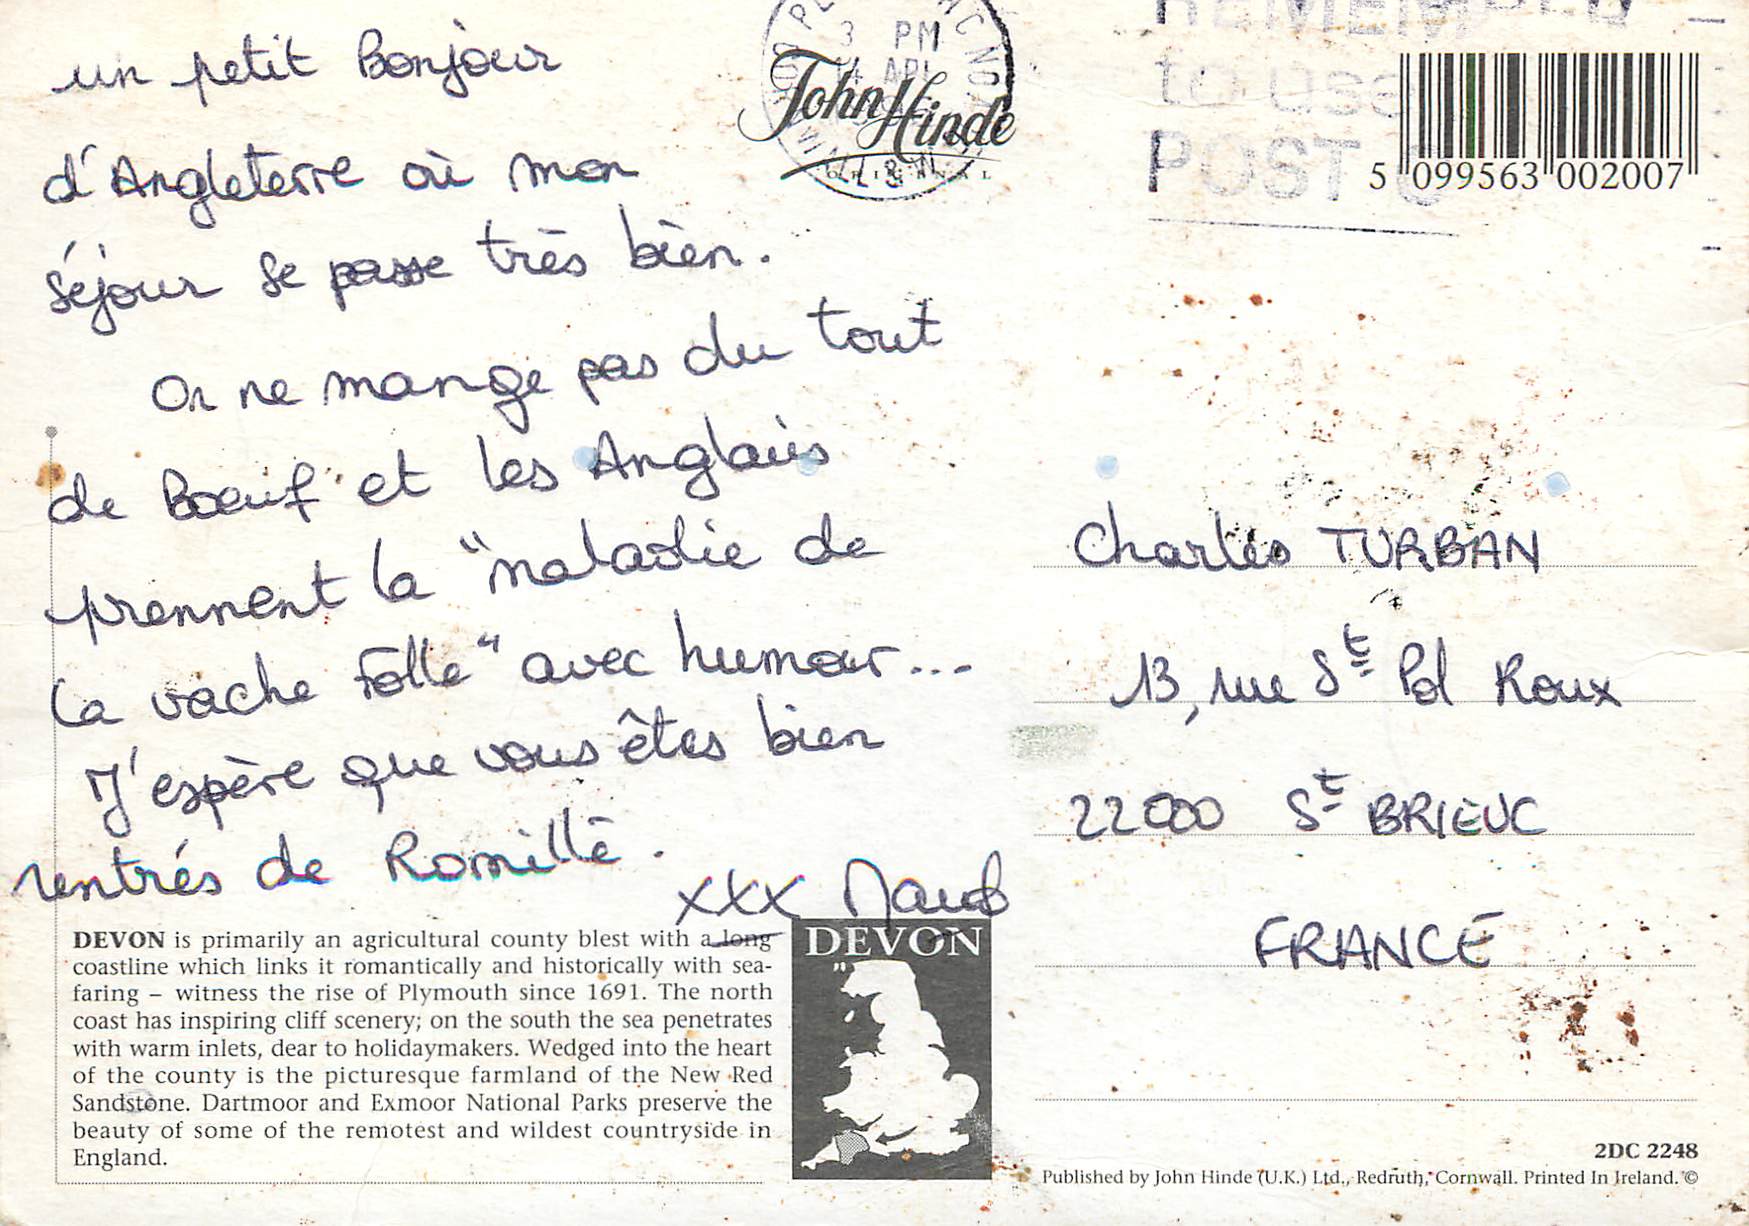 un petit Bonjour
d'Angleterre où mon
séjour se passe très bien.
On ne mange pas du tout
de Boeuf et les Anglais
prennent la "maladie de
la vache folle" avec humour...
J'espère que vous êtes bien
rentrés de Romillé.
xxx Maud
3 PM
14 APL
John Hinde
ORIGINAL
REMEMBER
to use
POST C
5 099563 002007
Charles TURBAN
13, rue St Pol Roux
22000 St BRIEUC
FRANCE
DEVON is primarily an agricultural county blest with a long
coastline which links it romantically and historically with sea-
faring – witness the rise of Plymouth since 1691. The north
coast has inspiring cliff scenery; on the south the sea penetrates
with warm inlets, dear to holidaymakers. Wedged into the heart
of the county is the picturesque farmland of the New Red
Sandstone. Dartmoor and Exmoor National Parks preserve the
beauty of some of the remotest and wildest countryside in
England.
DEVON
2DC 2248
Published by John Hinde (U.K.) Ltd., Redruth, Cornwall. Printed In Ireland. ©